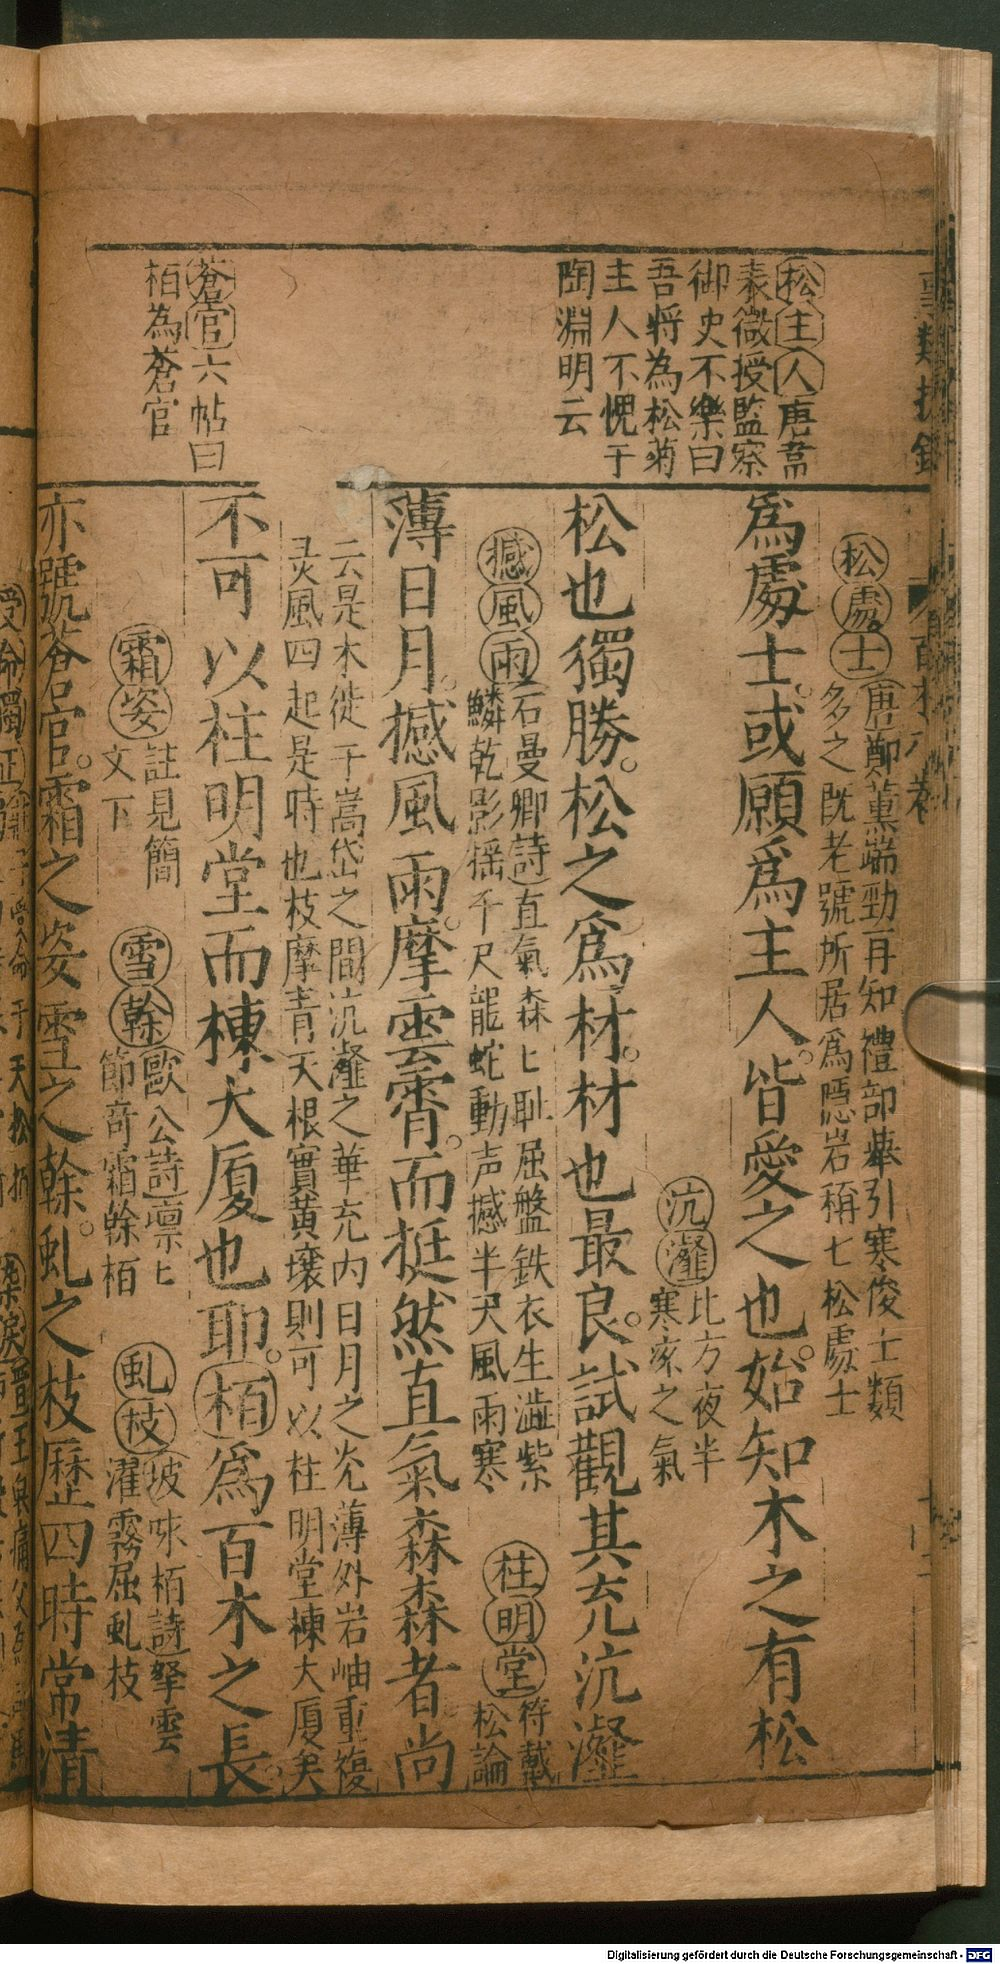 松主人唐韋
表微授監察
御史不樂曰
吾將為松菊
主人不愧于
陶淵明云
蒼官六帖曰
栢為蒼官
松處士
唐鄭薰端勁再知禮部舉引寒俊士類
多之既老號所居爲隱岩稱七松處士
爲處士或願爲主人皆愛之也始知木之有松
沆瀣
比方夜半
寒凉之氣
松也獨勝松之爲材材也最良試觀其充沆瀣
撼風雨
石曼卿詩直氣森匕耻屈盤鉄衣生澁紫
鱗乾影揺千尺龍蛇動声撼半天風雨寒
柱明堂
符載
松論
薄日月撼風雨摩雲霄而挺然直氣森森者尚
云是木徙于嵩岱之間沆瀣之華充内日月之光薄外岩岫重複
炎風四起是時也枝摩青天根實黄壤則可以柱明堂棟大厦矣
不可以柱明堂而棟大厦也耶栢爲百木之長
霜姿
註見簡
文下
雪榦
歐公詩凛匕
節奇霜榦栢
虬枝
坡咏栢詩拏雲
濯霧屈虬枝
亦號蒼官霜之姿雪之榦虬之枝歷四時常清
Digitalisierung gefördert durch die Deutsche Forschungsgemeinschaft - DFG